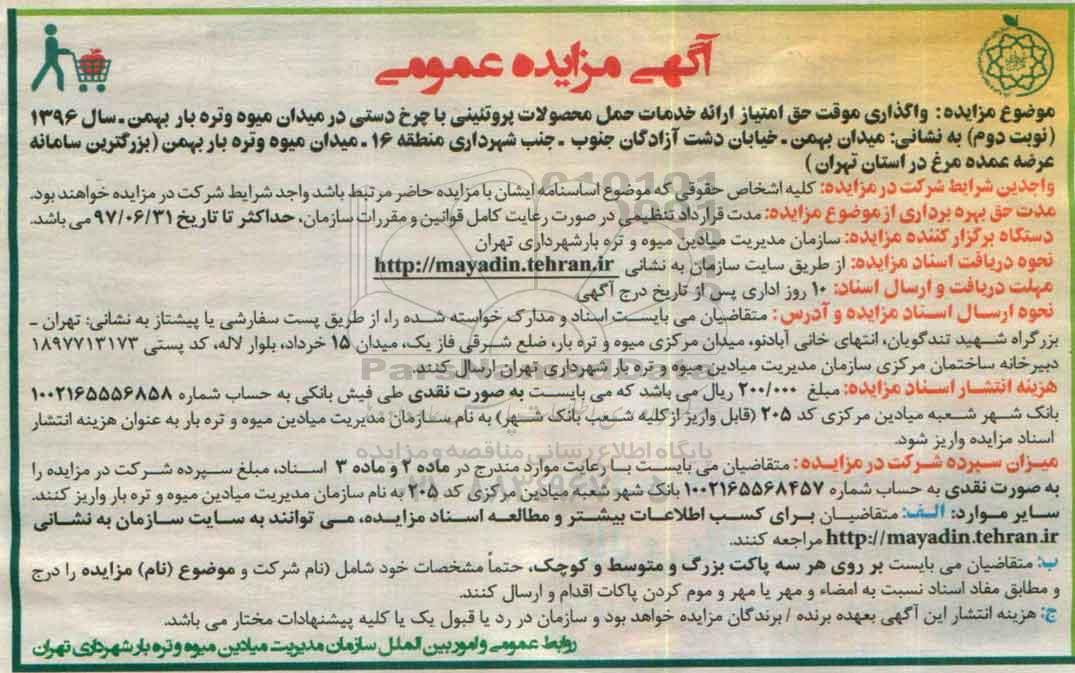 آگهی مزایده عمومی
موضوع مزایده: واگذاری موقت حق امتیاز ارائه خدمات حمل محصولات پروتئینی با چرخ دستی در میدان میوه وتره بار بهمن ـ سال ۱۳۹۶
(نوبت دوم) به نشانی: میدان بهمن ـ خیابان دشت آزادگان جنوب ـ جنب شهرداری منطقه ۱۶ ـ میدان میوه وتره بار بهمن (بزرگترین سامانه
عرضه عمده مرغ در استان تهران)
واجدین شرایط شرکت در مزایده: کلیه اشخاص حقوقی که موضوع اساسنامه ایشان با مزایده حاضر مرتبط باشد واجد شرایط شرکت در مزایده خواهند بود.
مدت حق بهره برداری از موضوع مزایده: مدت قرارداد تنظیمی در صورت رعایت کامل قوانین و مقررات سازمان، حداکثر تا تاریخ ۹۷/۰۶/۳۱ می باشد.
دستگاه برگزار کننده مزایده: سازمان مدیریت میادین میوه و تره بارشهرداری تهران
نحوه دریافت اسناد مزایده: از طریق سایت سازمان به نشانی http://mayadin.tehran.ir
مهلت دریافت و ارسال اسناد: ۱۰ روز اداری پس از تاریخ درج آگهی
نحوه ارسال اسناد مزایده و آدرس: متقاضیان می بایست اسناد و مدارک خواسته شده را، از طریق پست سفارشی یا پیشتاز به نشانی: تهران ـ
بزرگراه شهید تندگویان، انتهای خانی آبادنو، میدان مرکزی میوه و تره بار، ضلع شرقی فاز یک، میدان ۱۵ خرداد، بلوار لاله، کد پستی ۱۸۹۷۷۱۳۱۷۳
دبیرخانه ساختمان مرکزی سازمان مدیریت میادین میوه و تره بار شهرداری تهران ارسال کنند.
هزینه انتشار اسناد مزایده: مبلغ ۲۰۰/۰۰۰ ریال می باشد که می بایست به صورت نقدی طی فیش بانکی به حساب شماره ۱۰۰۲۱۶۵۵۵۶۸۵۸
بانک شهر شعبه میادین مرکزی کد ۲۰۵ (قابل واریز از کلیه شعب بانک شهر) به نام سازمان مدیریت میادین میوه و تره بار به عنوان هزینه انتشار
اسناد مزایده واریز شود.
میزان سپرده شرکت در مزایده: متقاضیان می بایست با رعایت موارد مندرج در ماده ۲ و ماده ۳ اسناد، مبلغ سپرده شرکت در مزایده را
به صورت نقدی به حساب شماره ۱۰۰۲۱۶۵۵۶۸۴۵۷ بانک شهر شعبه میادین مرکزی کد ۲۰۵ به نام سازمان مدیریت میادین میوه و تره بار واریز کنند.
سایر موارد: الف: متقاضیان برای کسب اطلاعات بیشتر و مطالعه اسناد مزایده، می توانند به سایت سازمان به نشانی
http://mayadin.tehran.ir مراجعه کنند.
ب: متقاضیان می بایست بر روی هر سه پاکت بزرگ و متوسط و کوچک، حتماً مشخصات خود شامل (نام شرکت و موضوع (نام) مزایده را درج
و مطابق مفاد اسناد نسبت به امضاء و مهر یا مهر و موم کردن پاکات اقدام و ارسال کنند.
ج: هزینه انتشار این آگهی بعهده برنده / برندگان مزایده خواهد بود و سازمان در رد یا قبول یک یا کلیه پیشنهادات مختار می باشد.
روابط عمومی و امور بین الملل سازمان مدیریت میادین میوه و تره بار شهرداری تهران
پایگاه اطلاع رسانی مناقصه و مزایده